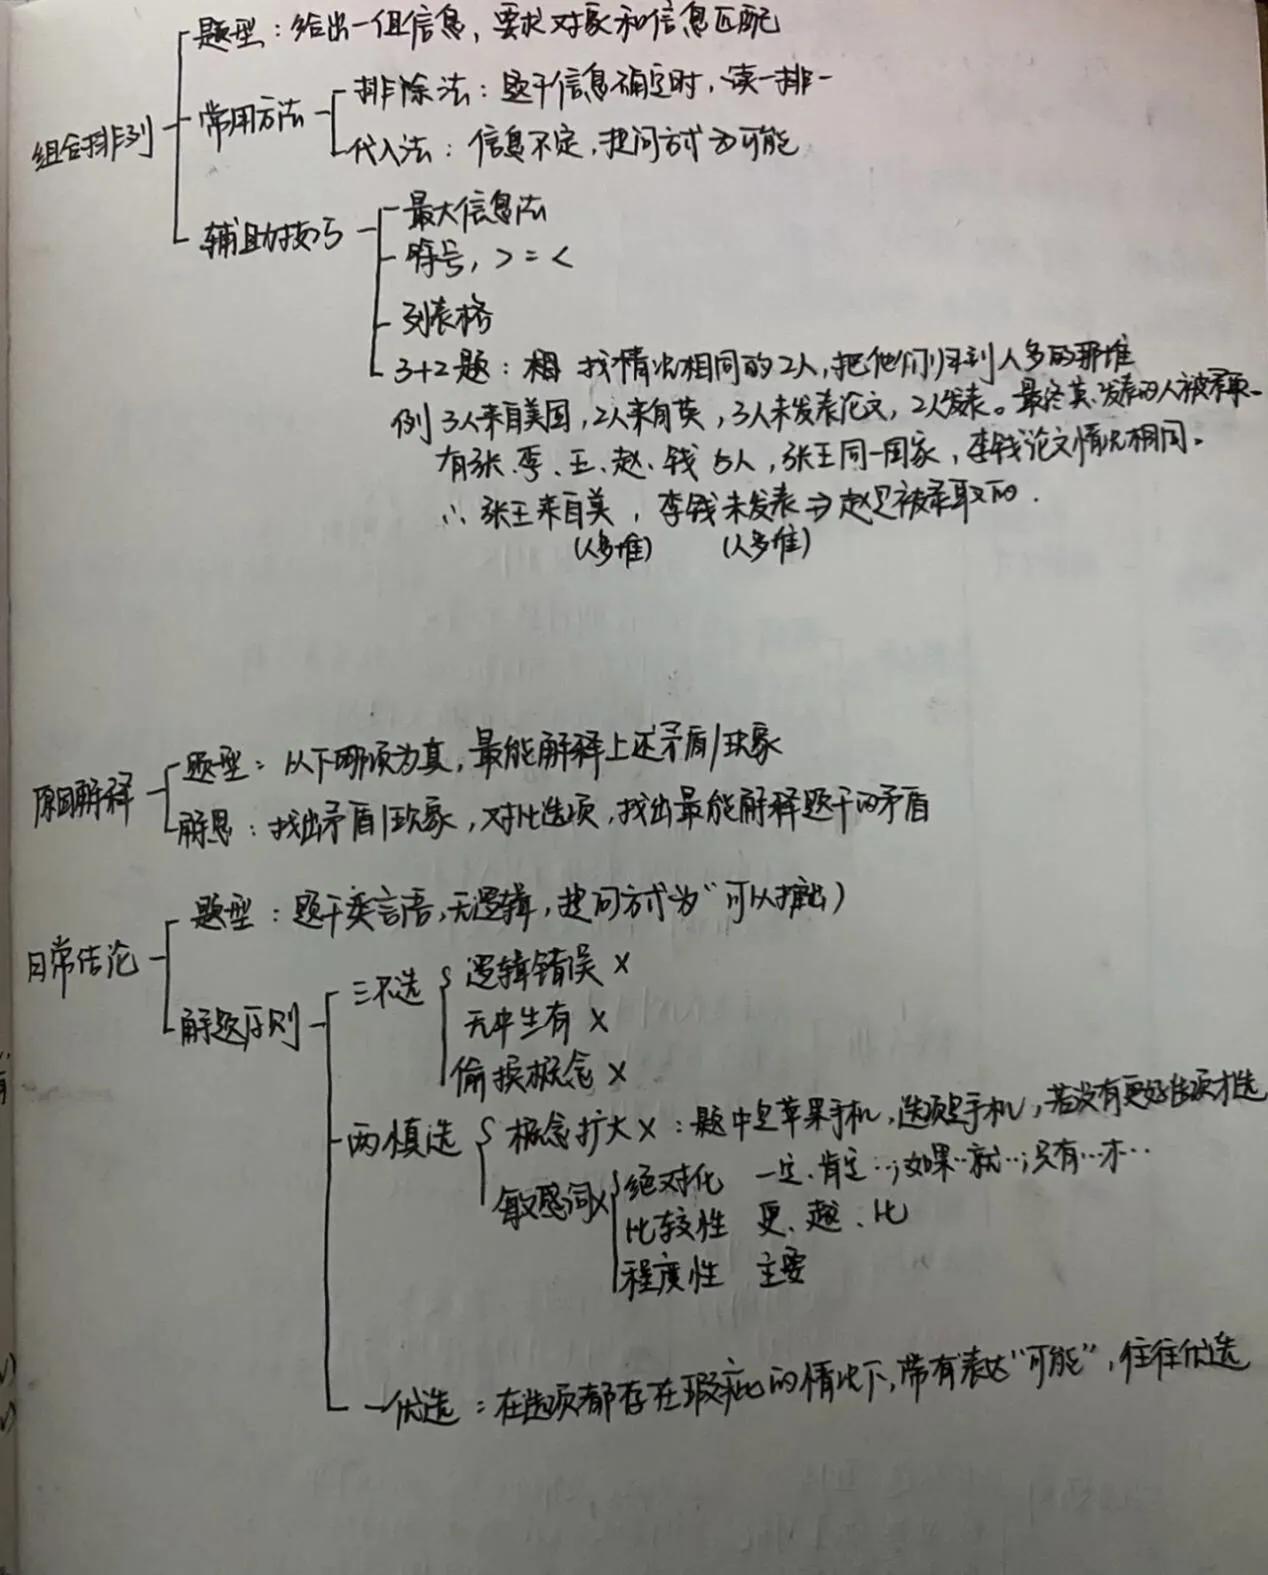 题型：给出一组信息，要求对象和信息匹配
组合排列
常用方法
排除法：题干信息确定时，读一排一
代入法：信息不定，提问方式为可能
辅助技巧
最大信息法
符号，> = <
列表格
3+2题：相 找情况相同的2人，把他们归到人多的那堆
例 3人来自美国，2人来自英，3人未发表论文，2人发表。最终英·发表的人被录取
有张、李、王、赵、钱 5人，张王同一国家，李钱论文情况相同。
∴ 张王来自美，李钱未发表⇒赵是被录取的.
(人多堆) (人多堆)
原因解释
题型：以下哪项为真，最能解释上述矛盾/现象
解思：找出矛盾/现象，对比选项，找出最能解释题干的矛盾
日常结论
题型：题干类言语，无逻辑，提问方式为“可以推出)
解题原则
三不选
逻辑错误 ×
无中生有 ×
偷换概念 ×
两慎选
概念扩大×：题中是苹果手机，选项是手机，若没有更好选项才选
敏感词×
绝对化 一定、肯定…；如果…就…；只有…才…
比较性 更、越、比
程度性 主要
一优选：在选项都存在瑕疵的情况下，带有表达“可能”，往往优选